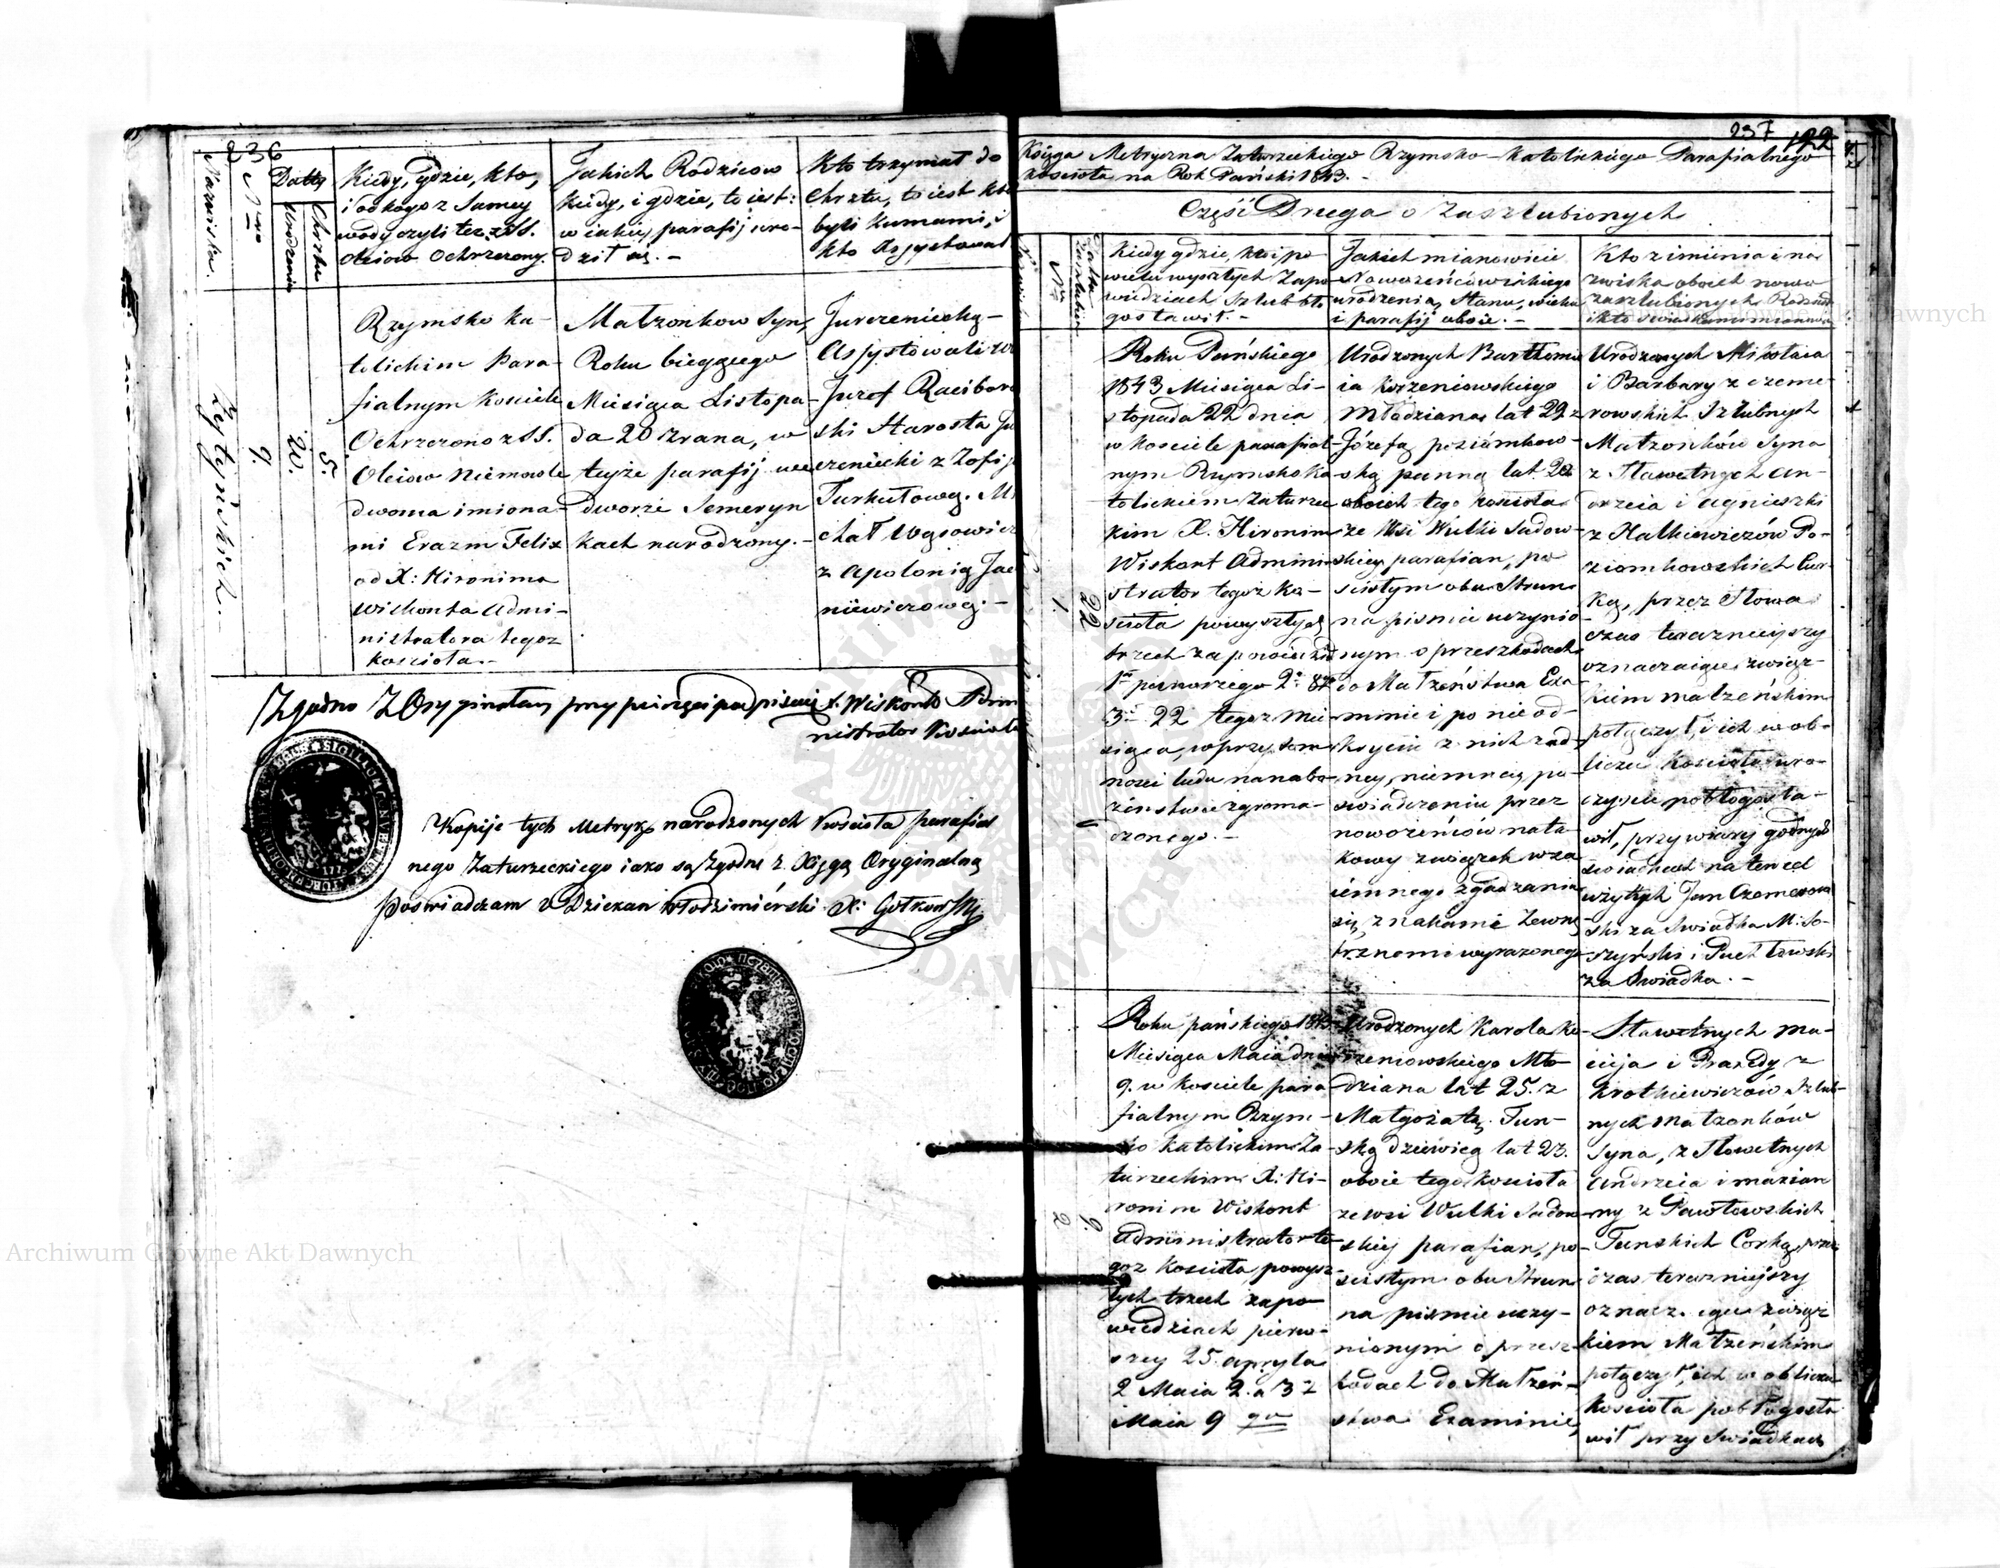 236
Nazwiska.
Nro
Datty
Urodzenia
Chrztu
Kiedy, gdzie, kto,
i od kogo z Samey
wody czyli też z SS.
Oleiow Ochrzczony.
Jakich Rodzicow
kiedy, i gdzie, to iest:
w iakiey parafij uro-
dził się. -
Kto trzymał do
Chrztu, to iest kto
byli kumami, i
kto Assystował
9.
20.
5.
Rzymsko ka-
tolickim Para-
fialnym kościele
Ochrzczono z SS.
Oleiow Niemowle
dwoma imiona-
mi Erazm Felix
od X: Hironima
Wiskonta Admi-
nistratora tegoz
kościoła. -
Małzonkow Syn,
Roku bieżącego
Miesiąca Listopa-
da 20 zrana, w
teyże parafij we
dworze Semeryn
kach narodzony. -
Assystowali
Jozef Racibor
ski Starosta
z Zofij
Turkułową.
chał Wąsowicz
z Apolonią
niewiczową. -
Zgodno z Oryginałem X. Wiskont Admi
nistrator Kościoła
Kopije tych Metryk narodzonych kościoła parafial
nego Zaturzeckiego iako są zgodne z Xięgą Oryginalną
Poświadczam Dziekan Włodzimierski X:
237
122
Księga Metryczna Zaturzeckiego Rzymsko-Katolickiego Parafialnego
kościoła na Rok Pański 1843. -
Część Druga o Zaszlubionych
Nr
Kiedy gdzie, kto i po
wielu wyszłych Zapo
wiedziach Szlub bło
gosławił. -
Jakich mianowicie
Nowożeńców iakiego
urodzenia, Stanu, wieku
i parafij oboie. -
Kto z imienia i na
zwiska oboich nowo
zaszlubionych Rodzice
22
1
Roku Pańskiego
1843 Miesiąca Li-
stopada 22 dnia
w kościele parafial
nym Rzymsko ka
tolickiem Zaturzec
kim X. Hironim
Wiskont Admini
strator tegoż ko-
ścioła powyszłych
trzech zapowiedz
1a pierwszego 2a 8.
3a 22 tegoz mie
siąca, w przytom
ności ludu na nabo
żeństwie zgroma-
dzonego. -
Urodzonych Bartłomie
ia Korzeniowskiego
Młodziana lat 22 z
Józefą poziomkow-
ską panną lat 20
oboich tego kościoła
ze Wsi Wulki Sadow-
skiey parafian, po
scisłym obu Stron
na piśmie uczynio
nym o przeszkodach
do Małżeństwa Exa
minie i po nieod-
kryciu z nich żad
ney, niemniey po-
swiadczeniu przez
nowożeńców na ta-
kowy związek wza
iemnego zgadzania
się, znakami Zewnę
trznemi wyrażonego
Urodzonych Mikołaia
i Barbary z czeme-
rowskich Szlubnych
Małzonków Syna
z Sławetnych An-
drzeia i Agnieszki
z Halkiewiczów Po-
ziomkowskich Cur
ką, przez Słowa
czas teraznieyszy
oznaczaiące związ-
kiem małżeńskim
połączył, i ich w ob-
liczu kościoła uro-
czyście pobłogosła-
wił, przy wiary godnych
świadkach na ten cel
wzytych Jan Czemerow
ski za Swiadka M. So-
szyński i Puchławski
za Swiadka. -
9.
2
Roku pańskiego 1843
Miesiąca Maia dnia
9. w kościele para
fialnym Rzym-
sko katolickim Za-
turzeckim X. Hi-
ronim Wiskont
Administrator te
goz kościoła powysz-
łych trzech zapo-
wiedziach pierw-
szey 25. apryla
2 Maia 2. a 3 z
Maia 9 go
Urodzonych Karola Ko
rzeniowskiego Mło
dziana lat 25. z
Małgorzatą Tun-
ską dziewicą lat 23.
oboie tego kościoła
ze wsi Wulki Sadow
skiey parafian, po-
scisłym obu Stron
na piśmie uczy-
nionym o przesz
kodach do Małżeń-
stwa Examinie,
Sławetnych Ma-
cieja i Praxedy z
Krotkiewiczów Szlub-
nych małzonków
Syna, z Sławetnych
Andrzeia i marian
ny z Pawłowskich
Tunskich Corką, przez
czas teraznieyszy
oznacz. ące związ
kiem Małżeńskim
połączył, ich w obliczu
kościoła pobłogosła
wił przy Swiadkach
Archiwum Główne Akt Dawnych
Archiwum Główne Akt Dawnych